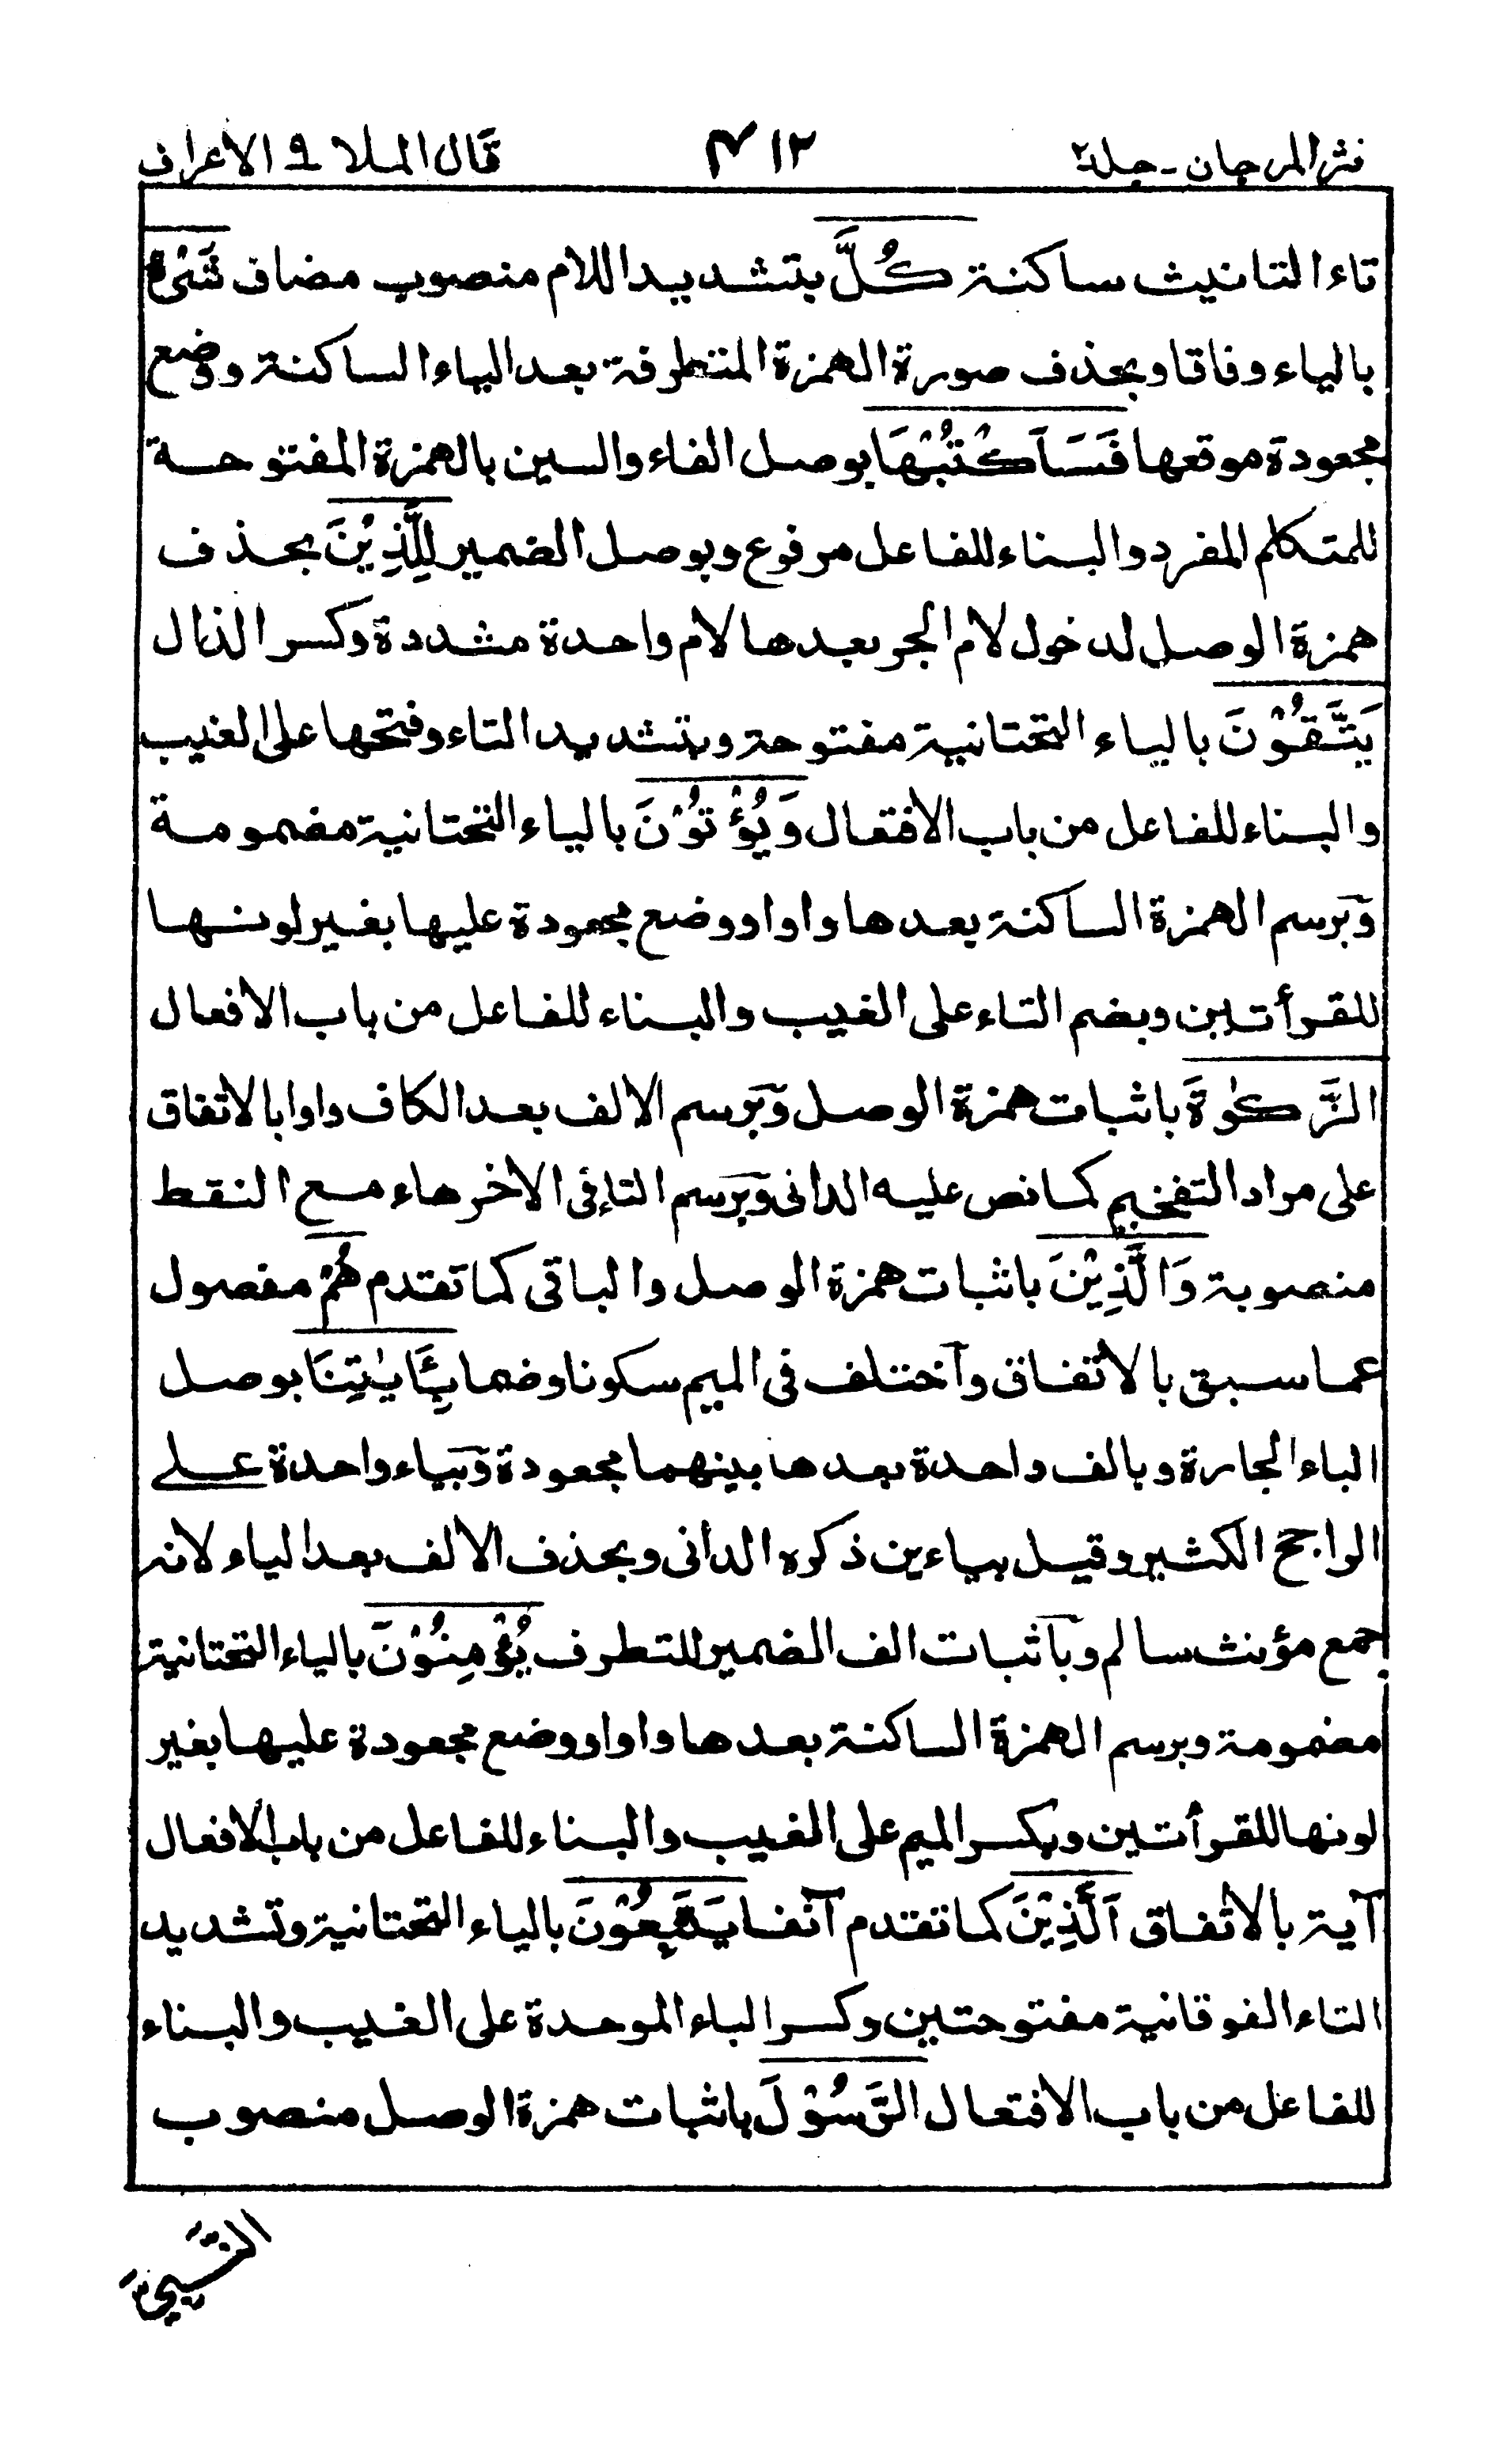 نثر المرجان - جلد ٢
٤١٢
قال الملا ٩ الاعراف
تاء التانيث ساكنة كُلَّ بتشديد اللام منصوب مضاف شَىْءٍ
بالياء وفاقا وبحذف صورة الهمزة المتطرفة بعد الياء الساكنة ووضع
مجعودة موقعها فَسَاَكْتُبُهَا بوصل الفاء والسين بالهمزة المفتوحة
للمتكلم المفرد والبناء للفاعل مرفوع وبوصل الضمير لِلَّذِيْنَ بحذف
همزة الوصل لدخول لام الجر بعدها لام واحدة مشددة وكسر الذال
يَتَّقُوْنَ بالياء التحتانية مفتوحة وبتشديد التاء وفتحها على الغيب
والبناء للفاعل من باب الافتعال وَيُؤْتُوْنَ بالياء التحتانية مضمومة
وبرسم الهمزة الساكنة بعدها واوا ووضع مجعودة عليها بغير لونها
للقرأتين وبضم التاء على الغيب والبناء للفاعل من باب الافعال
الزَّكٰوةَ باثبات همزة الوصل وبرسم الالف بعد الكاف واوا بالاتفاق
على مراد التفخيم كما نص عليه الدانى وبرسم التا فى الاخر هاء مع النقط
منصوبة وَالَّذِيْنَ باثبات همزة الوصل والباقى كما تقدم هُمْ مفصول
عما سبق بالاتفاق وآختلف فى الميم سكونا وضما بِـَٔايٰتِنَا بوصل
الباء الجارة وبالف واحدة بعدها بينهما مجعودة وبياء واحدة على
الراجح الكثير وقيل بياءين ذكره الدانى وبحذف الالف بعد الياء لانه
جمع مؤنث سالم وبآثبات الف الضمير للتطرف يُؤْمِنُوْنَ بالياء التحتانية
مضمومة وبرسم الهمزة الساكنة بعدها واوا ووضع مجعودة عليها بغير
لونها للقرأتين وبكسر الميم على الغيب والبناء للفاعل من باب الافعال
آية بالاتفاق اَلَّذِيْنَ كما تقدم آنفا يَتَّبِعُوْنَ بالياء التحتانية وتشديد
التاء الفوقانية مفتوحتين وكسر الباء الموحدة على الغيب والبناء
للفاعل من باب الافتعال الرَّسُوْلَ باثبات همزة الوصل منصوب
النَّبِيَّ